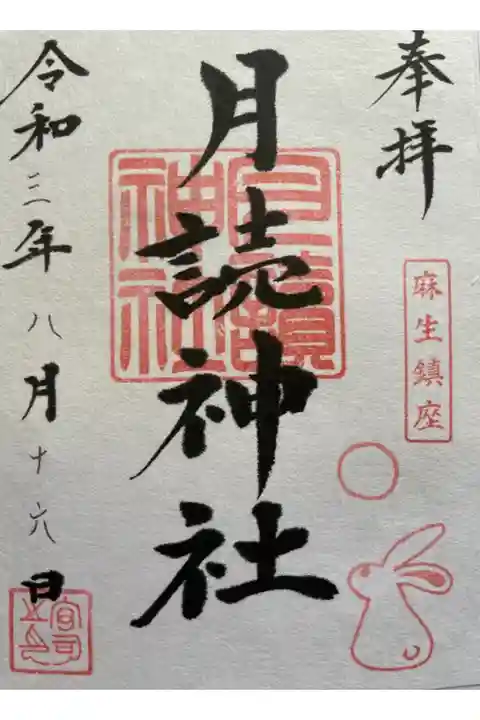 奉拝
麻生鎮座
月読神社
月讀神社
令和三年八月十六日
宮司之印